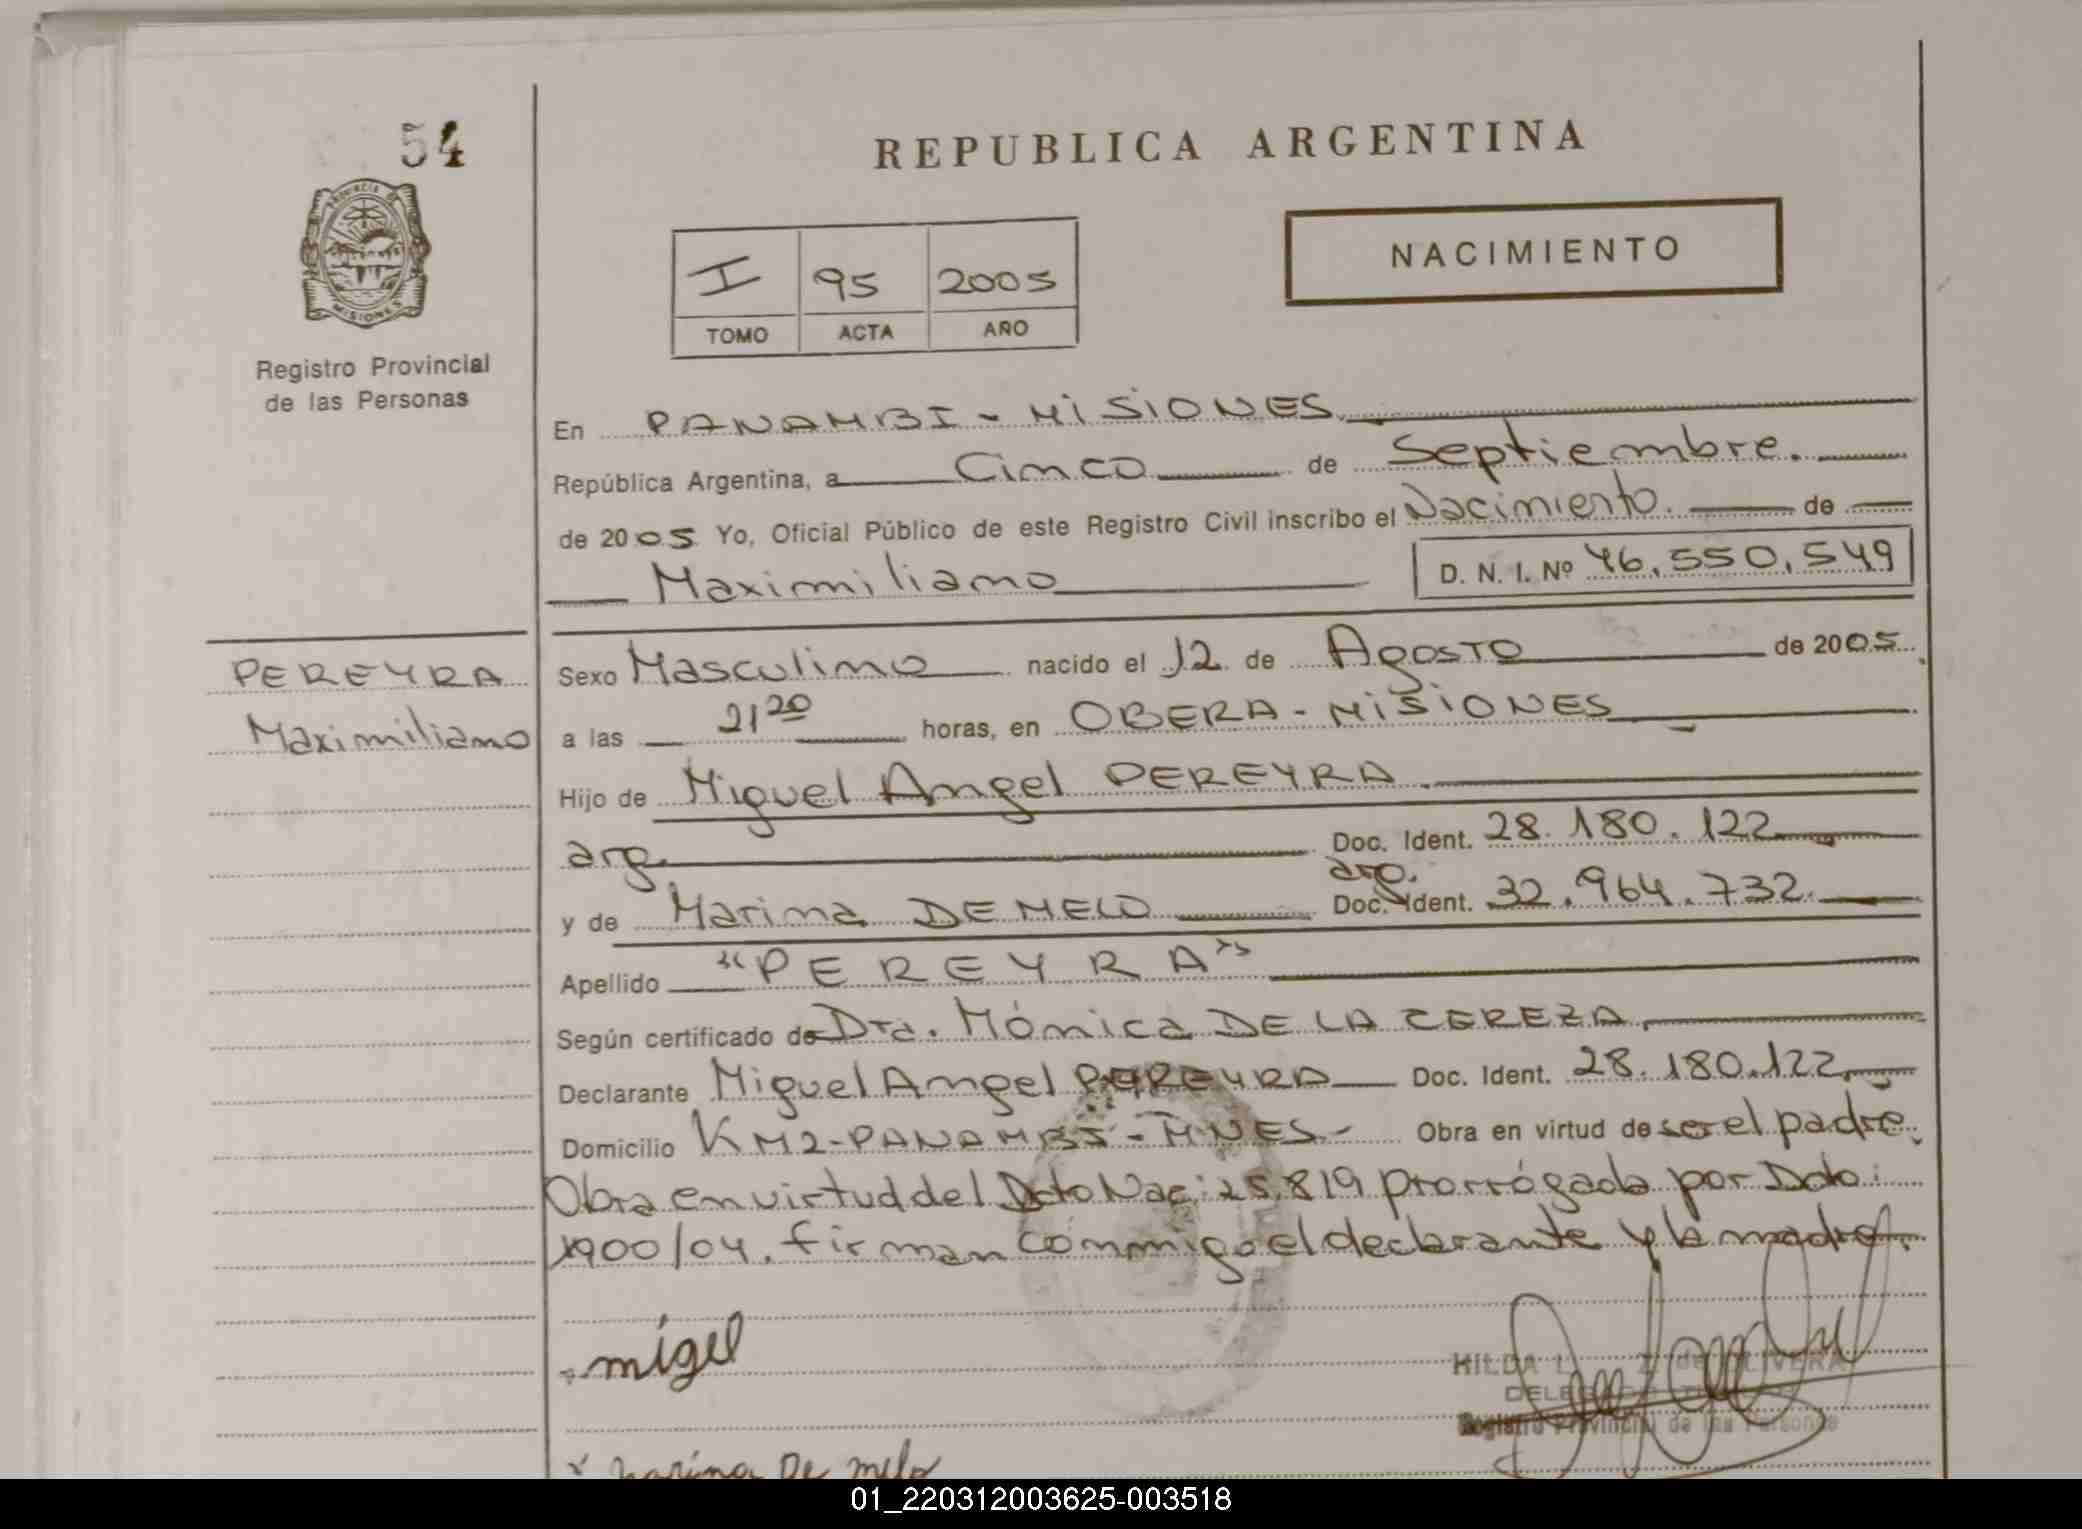 54
REPUBLICA ARGENTINA
PROVINCIA DE
MISIONES
Registro Provincial
de las Personas
I 95 2005
TOMO ACTA AÑO
NACIMIENTO
En PANAMBI - MISIONES
República Argentina, a Cinco de Septiembre.
de 2005 Yo, Oficial Público de este Registro Civil inscribo el Nacimiento. de
Maximiliano D. N. I. Nº 46.550.549
PEREYRA
Maximiliano
Sexo Masculino nacido el 12 de Agosto de 2005.
a las 21 20 horas, en OBERA - MISIONES
Hijo de Miguel Angel PEREYRA
arg. Doc. Ident. 28.180.122
arg.
y de Marina DE MELO Doc. Ident. 32.964.732.
Apellido "PEREYRA"
Según certificado de Dra. Mónica DE LA CEREZA
Declarante Miguel Angel PEREYRA Doc. Ident. 28.180.122
Domicilio KM2-PANAMBI - MNES- Obra en virtud de ser el padre.
Obra en virtud del Dcto Nac: 25.819 prorrógado por Dcto:
1900/04. firman conmigo el declarante y la madre.
migel
HILDA L. Z. de OLIVERA
DELEGADO TITULAR
Registro Provincial de las Personas
x marina De melo
01_220312003625-003518